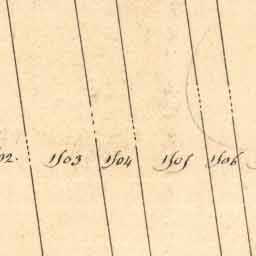 02. 1503 1504 1505 1506